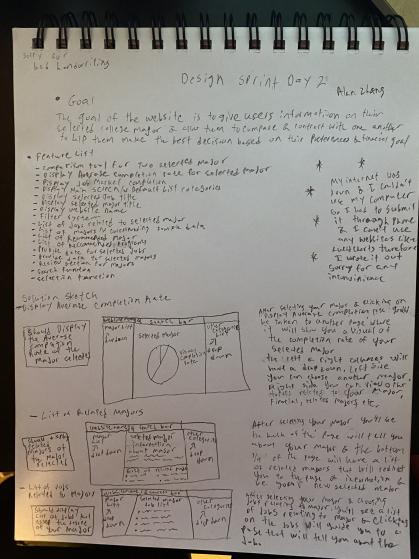 Sorry for
bad handwriting
Design Sprint Day 2
Alan Zhang
• Goal
The goal of the website is to give users information on their
selected college major & allow them to compare & contrast with one another
to help them make the best decision based on their preferences & financial goal
• Feature List
- comparison tool for two selected major
- Display Average completion rate for selected major
- Display Job Market
- Display Main Screen w/ Default List categories
- Display selected Job title
- Display selected major title
- Display website name
- Filter system
- List of Jobs related to selected major
- List of majors w/
- List of Recommended major
- List of Recommended
- Provide data for selected Jobs
- Provide data for selected majors
- Review section for majors
- Search function
- selection function
* *
* My internet was
down & I couldn't
use my computer
So I had to submit
it through phone
& I couldn't use
any websites like
therefore
I wrote it out
Sorry for any
inconvenience
Solution Sketch
- Display Average Completion Rate
Should Display
the Average
Completion
Rate of the
major selected
search bar
major list
selected major
drop down
After selecting your major & clicking on
Display Average completion rate you'll
be taken to another page where
it will show you a visual of
the completion rate of your
selected major
the left & right columns will
have a drop down, Left side
you can choose another major,
Right side you can view other
related to your major,
Financial, related majors etc.
- List of Related Majors
related
majors of
the major
selected
search bar
selected major
information
other
categories
drop down
After selecting your major you'll be
the page will tell you
about your major & the bottom
of the page will have a list
of related majors that will redirect
you to the page of information &
selected major
- List of Jobs
Related to Major
Should display
List of Jobs
search bar
major
list
drop
down
selected major
Job list
other
categories
drop down
After selecting your major & clicking
List of Jobs related to major you'll see a list
of Jobs related to major & clicking
on the Jobs will guide you to a
page that will tell you about the
Jobs